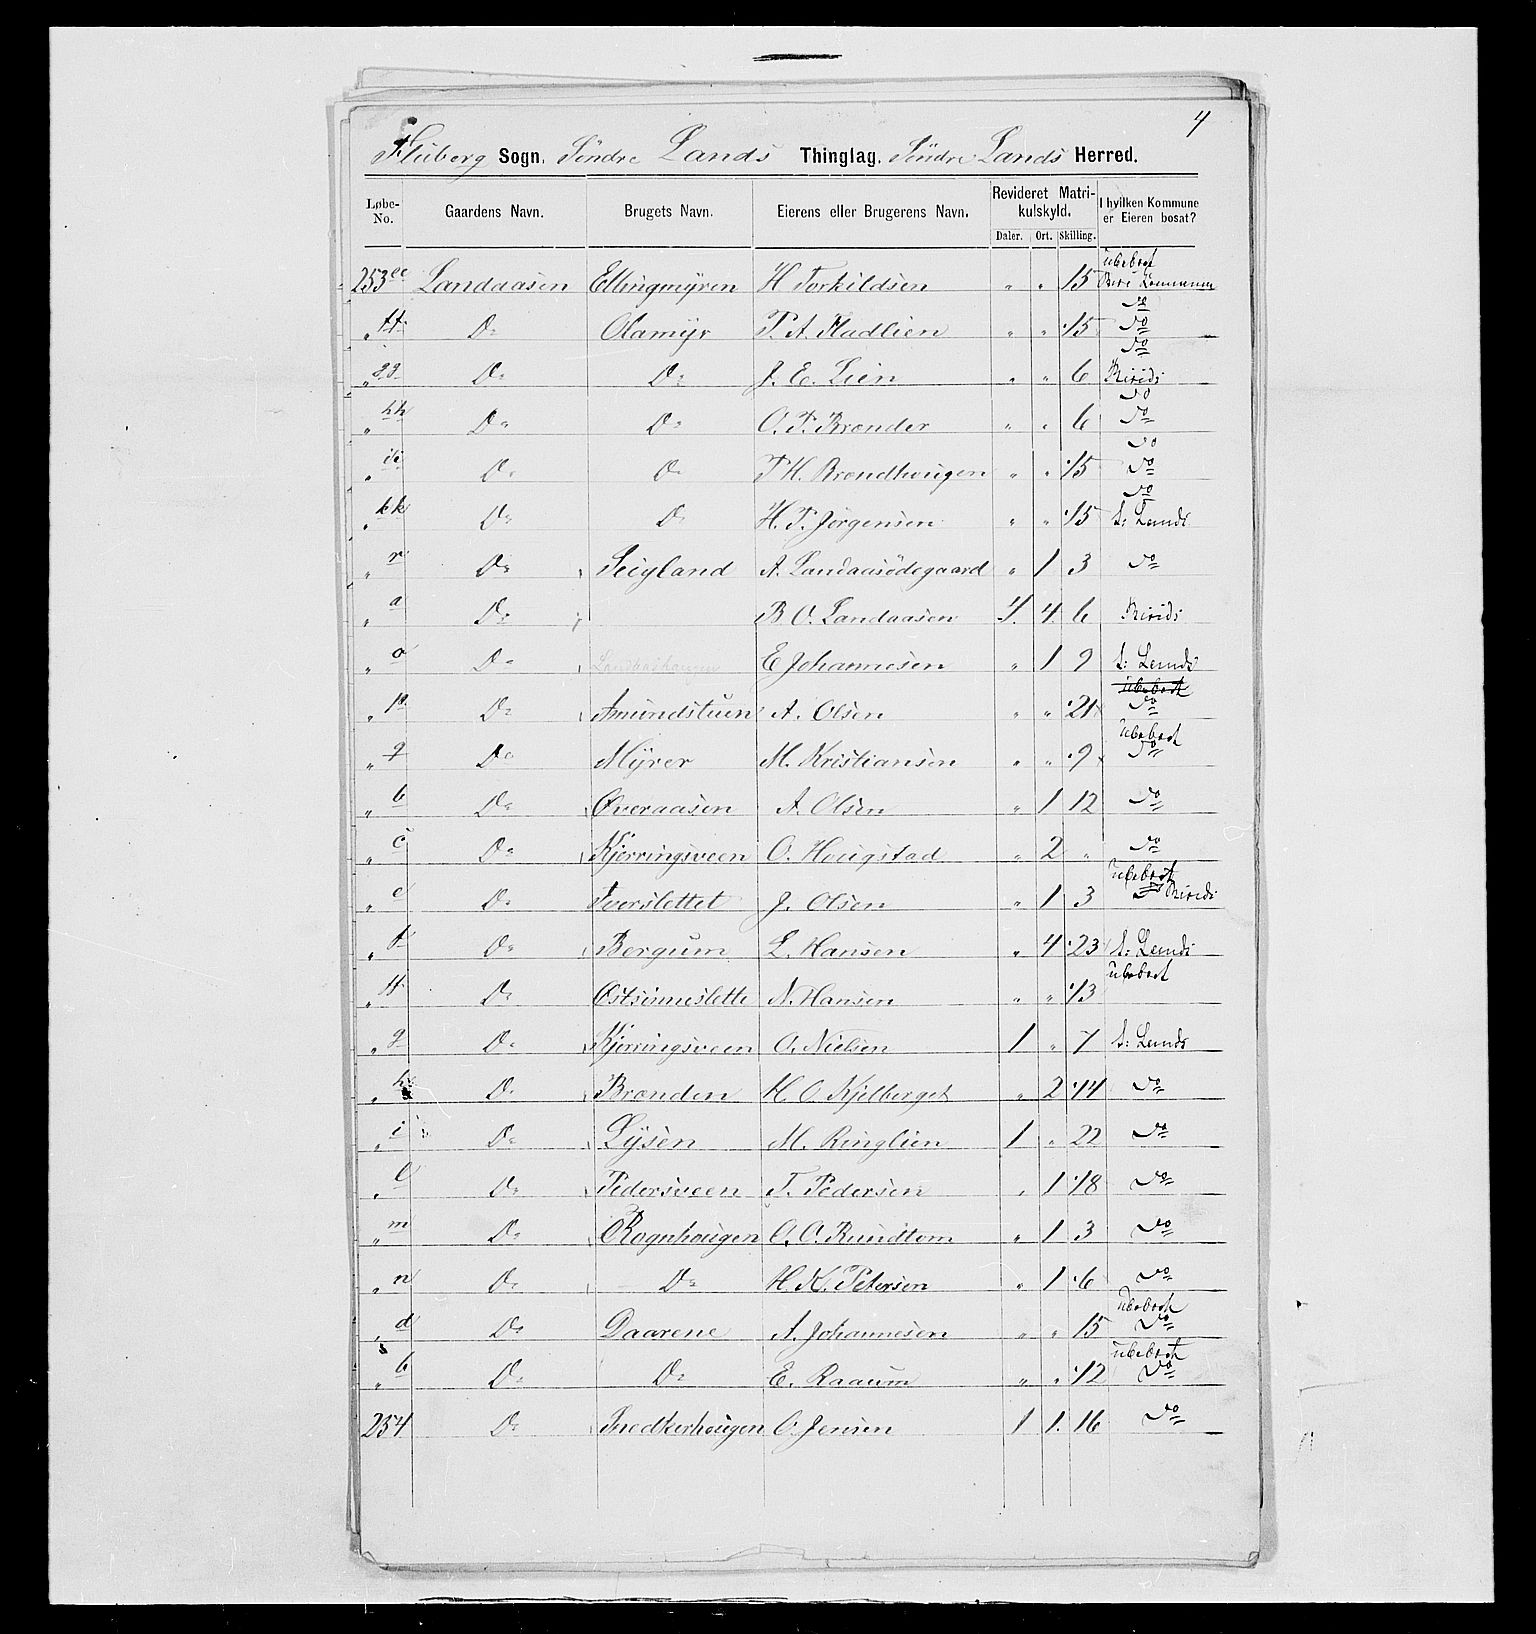 4
Fluberg Sogn, Søndre Lands Thinglag, Søndre Lands Herred.
Løbe-No. Gaardens Navn. Brugets Navn. Eierens eller Brugerens Navn. Revideret Matrikulskyld. Daler. Ort. Skilling. I hvilken Kommune er Eieren bosat?
253 ee Landaasen Ellingmyren H Torkildsen " " 15 ubeboet Biri Kommune
" ff Do Olamyr P. A. Madlien " " 15 do do
" gg Do Do J. E. Lien " " 6 do Birids
" hh Do Do O. P. Brænder " " 6 do do
" ii Do Do P H. Brændhougen " " 15 do do
" kk Do Do H. P. Jørgensen " " 15 do S: Lands
" r Do Seigland A. Landaasødegaard " 1 3 do
" a Do B O. Landaasen 4. 4. 6 Birids
" o Do Landaashaugen E Johannesen " 1 9 S: Lands
" p Do Amundstuen A. Olsen " " 21 ubeboet do
" q Do Myrer M. Kristiansen " " 9 ubeboet do
" b Do Øveraasen A. Olsen " 1 12 do
" c Do Kjerringsveen O. Hougstad " 2 " do
" e Do Tverslettet J. Olsen " 1 3 ubeboet Birids
" f Do Bergum L. Hansen " 4 23 S: Lands
" ff Do Østsinneslette N. Hansen " " 13 ubeboet
" g Do Kjerringsveen O. Nielsen 1 " 7 S: Lands
" h Do Brænden H. O. Kjelberget " 2 14 do
" i Do Lysen M. Ringlien 1 " 22 do
" l Do Pedersveen T. Pedersen " 1 18 do
" m Do Rognhougen O. O. Rundtom " 1 3 do
" n Do Do H. K. Petersen " 1 6 do
" d Do Daarene A. Johannesen " " 15 ubeboet do
" b Do Do E. Raaum " " 12 ubeboet do
254 Do Snedkerhougen O. Jensen 1 1. 16 do